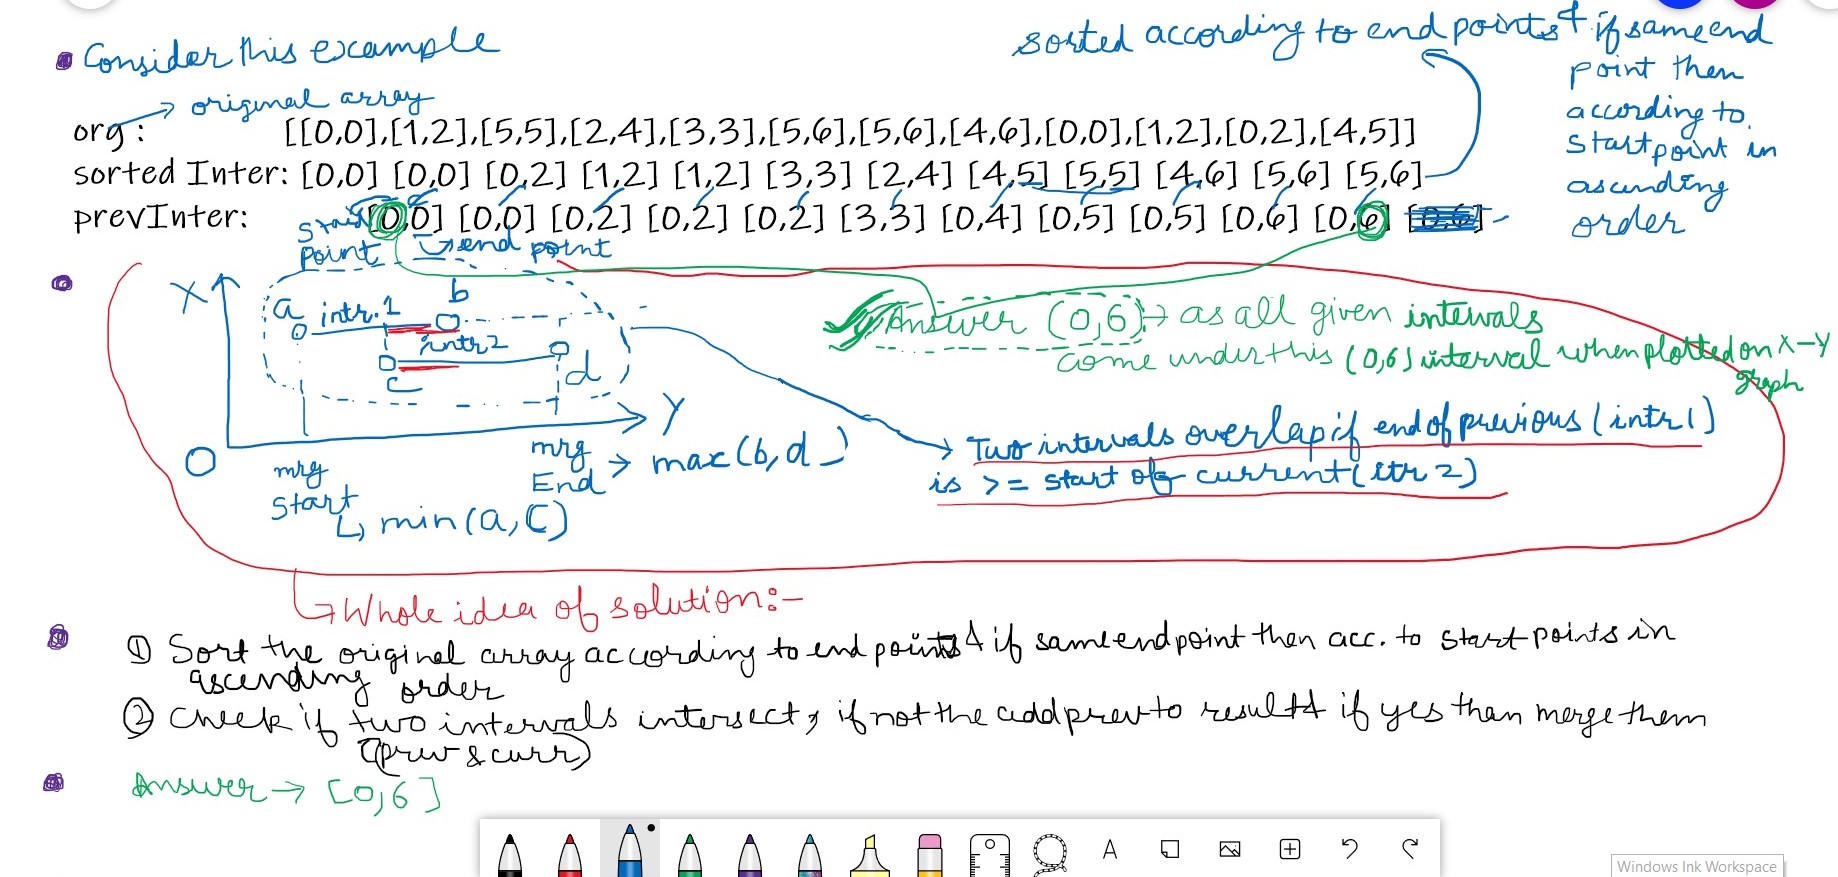 Consider this example
sorted according to end points & if same end
point then
according to
start point in
ascending
order
original array
org : [[0,0],[1,2],[5,5],[2,4],[3,3],[5,6],[5,6],[4,6],[0,0],[1,2],[0,2],[4,5]]
sorted Inter: [0,0] [0,0] [0,2] [1,2] [1,2] [3,3] [2,4] [4,5] [5,5] [4,6] [5,6] [5,6]
prevInter: [0,0] [0,0] [0,2] [0,2] [0,2] [3,3] [0,4] [0,5] [0,5] [0,6] [0,6]
start
point
end point
X
a intr.1 b
intr2
c
d
O
Y
mrg
Start
min(a,C)
mrg
End → max(b,d)
Answer (0,6) → as all given intervals
come under this (0,6) interval when plotted on X-Y
graph
Two intervals overlap if end of previous (intr1)
is >= start of current(itr 2)
Whole idea of solution:-
① Sort the original array according to end points & if same end point then acc. to start points in
ascending order
② Check if two intervals intersect, if not the add prev to result & if yes than merge them
(prev & curr)
Answer → [0,6]
A
Windows Ink Workspace